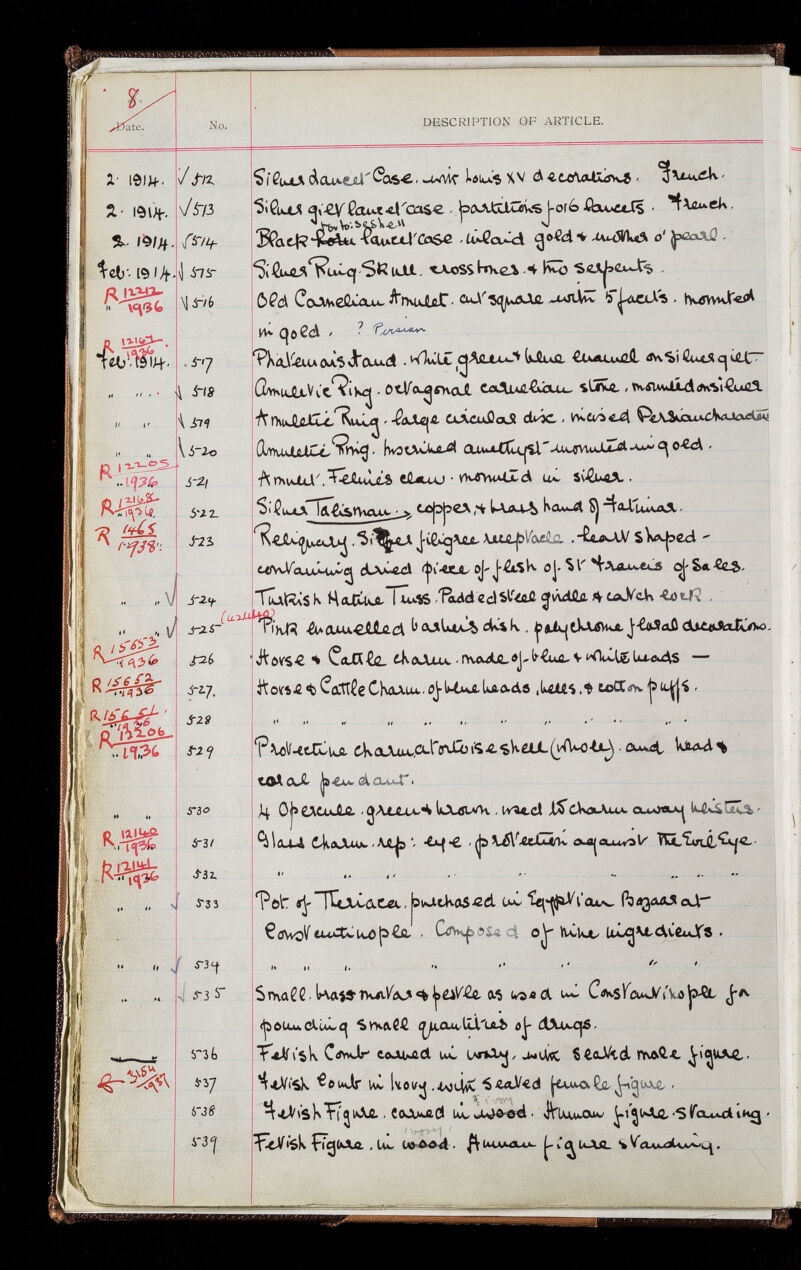 8.
Date. No. DESCRIPTION OF ARTICLE.
2. 1914. √ 512 Silver Lancet Case, with Louis XV decorations. French.
2. 1914. √ 513 Silver gilt lancet case. partitions for 6 lancets. French.
tortoiseshell
2. 1914. √ 514 Black lancet case. inlaid gold & mother o' pearl.
Feb: 1914. √ 515 Silver Ring. Skull. cross bones & two serpents.
R 12212 1936 " √ 516 Old Cornelian Amulet. cut square with 5 facets. mounted
in gold. ? Persian
R 12167. 1936
Feb: 1914. . 517 white green & blue enamel on silver gilt
" " √ 518 Amuletic Ring. Octagonal carnelian stone, mounted on silver
" " √ 519 Amuletic Ring. large circular disc, incised Persian characters
" " √ 520 Amuletic Ring. Inscribed amethyst mounted in gold.
R 12205 1936 521 Amulet. Felines claw. mounted in silver.
R 12168 1936 522 Silver Talisman. copper, & brass hand of Fatimar.
R 1465 1938 523 Reliquary. Silver filigree receptacle. heart shaped -
containing dried piece of flesh of St Francis of Sales.
" " √ 524 Turkish Hernia Truss. Padded steel girdle & catch lock.
" " √ 525 Pink enamelled barber's dish. polychrome floral decorations.
R 15653 1936 526 Horse & Cattle charm. made of blue & white beads —
R 15652 1936 527. Horse & Cattle Charm. of blue beads, & cotton puffs.
R 15651 1936 528 " " " " " " " " " "
R 12206 1936 529 Protective charm, a tortoise shell (whole). and bead &
coral pendant.
" " 530 4 Opercule. green & brown. used as charm away blisters.
R 12140 1936 531 Glass charm. rep: eye. protection against The Evil Eye.
R 12141 1936 532 " " " " " " "
" " √ 533 Pot of Theriaca, purchased in Egyptian Bazaar at
Constantinople. Composed of nine ingredients.
" " √ 534 " " " " " " "
" " √ 535 Small. brass mortar & pestle as used in Constantinople for
pounding small quantities of drugs.
536 Fetish Comb carved in ivory, with seated male figure.
R 3154 1951 537 Fetish Comb in Ivory. with seated female figure.
? ivory
538 Fetish Figure. carved in wood. Human figure standing.
ivory
539 Fetish Figure. in wood. Human figure standing.